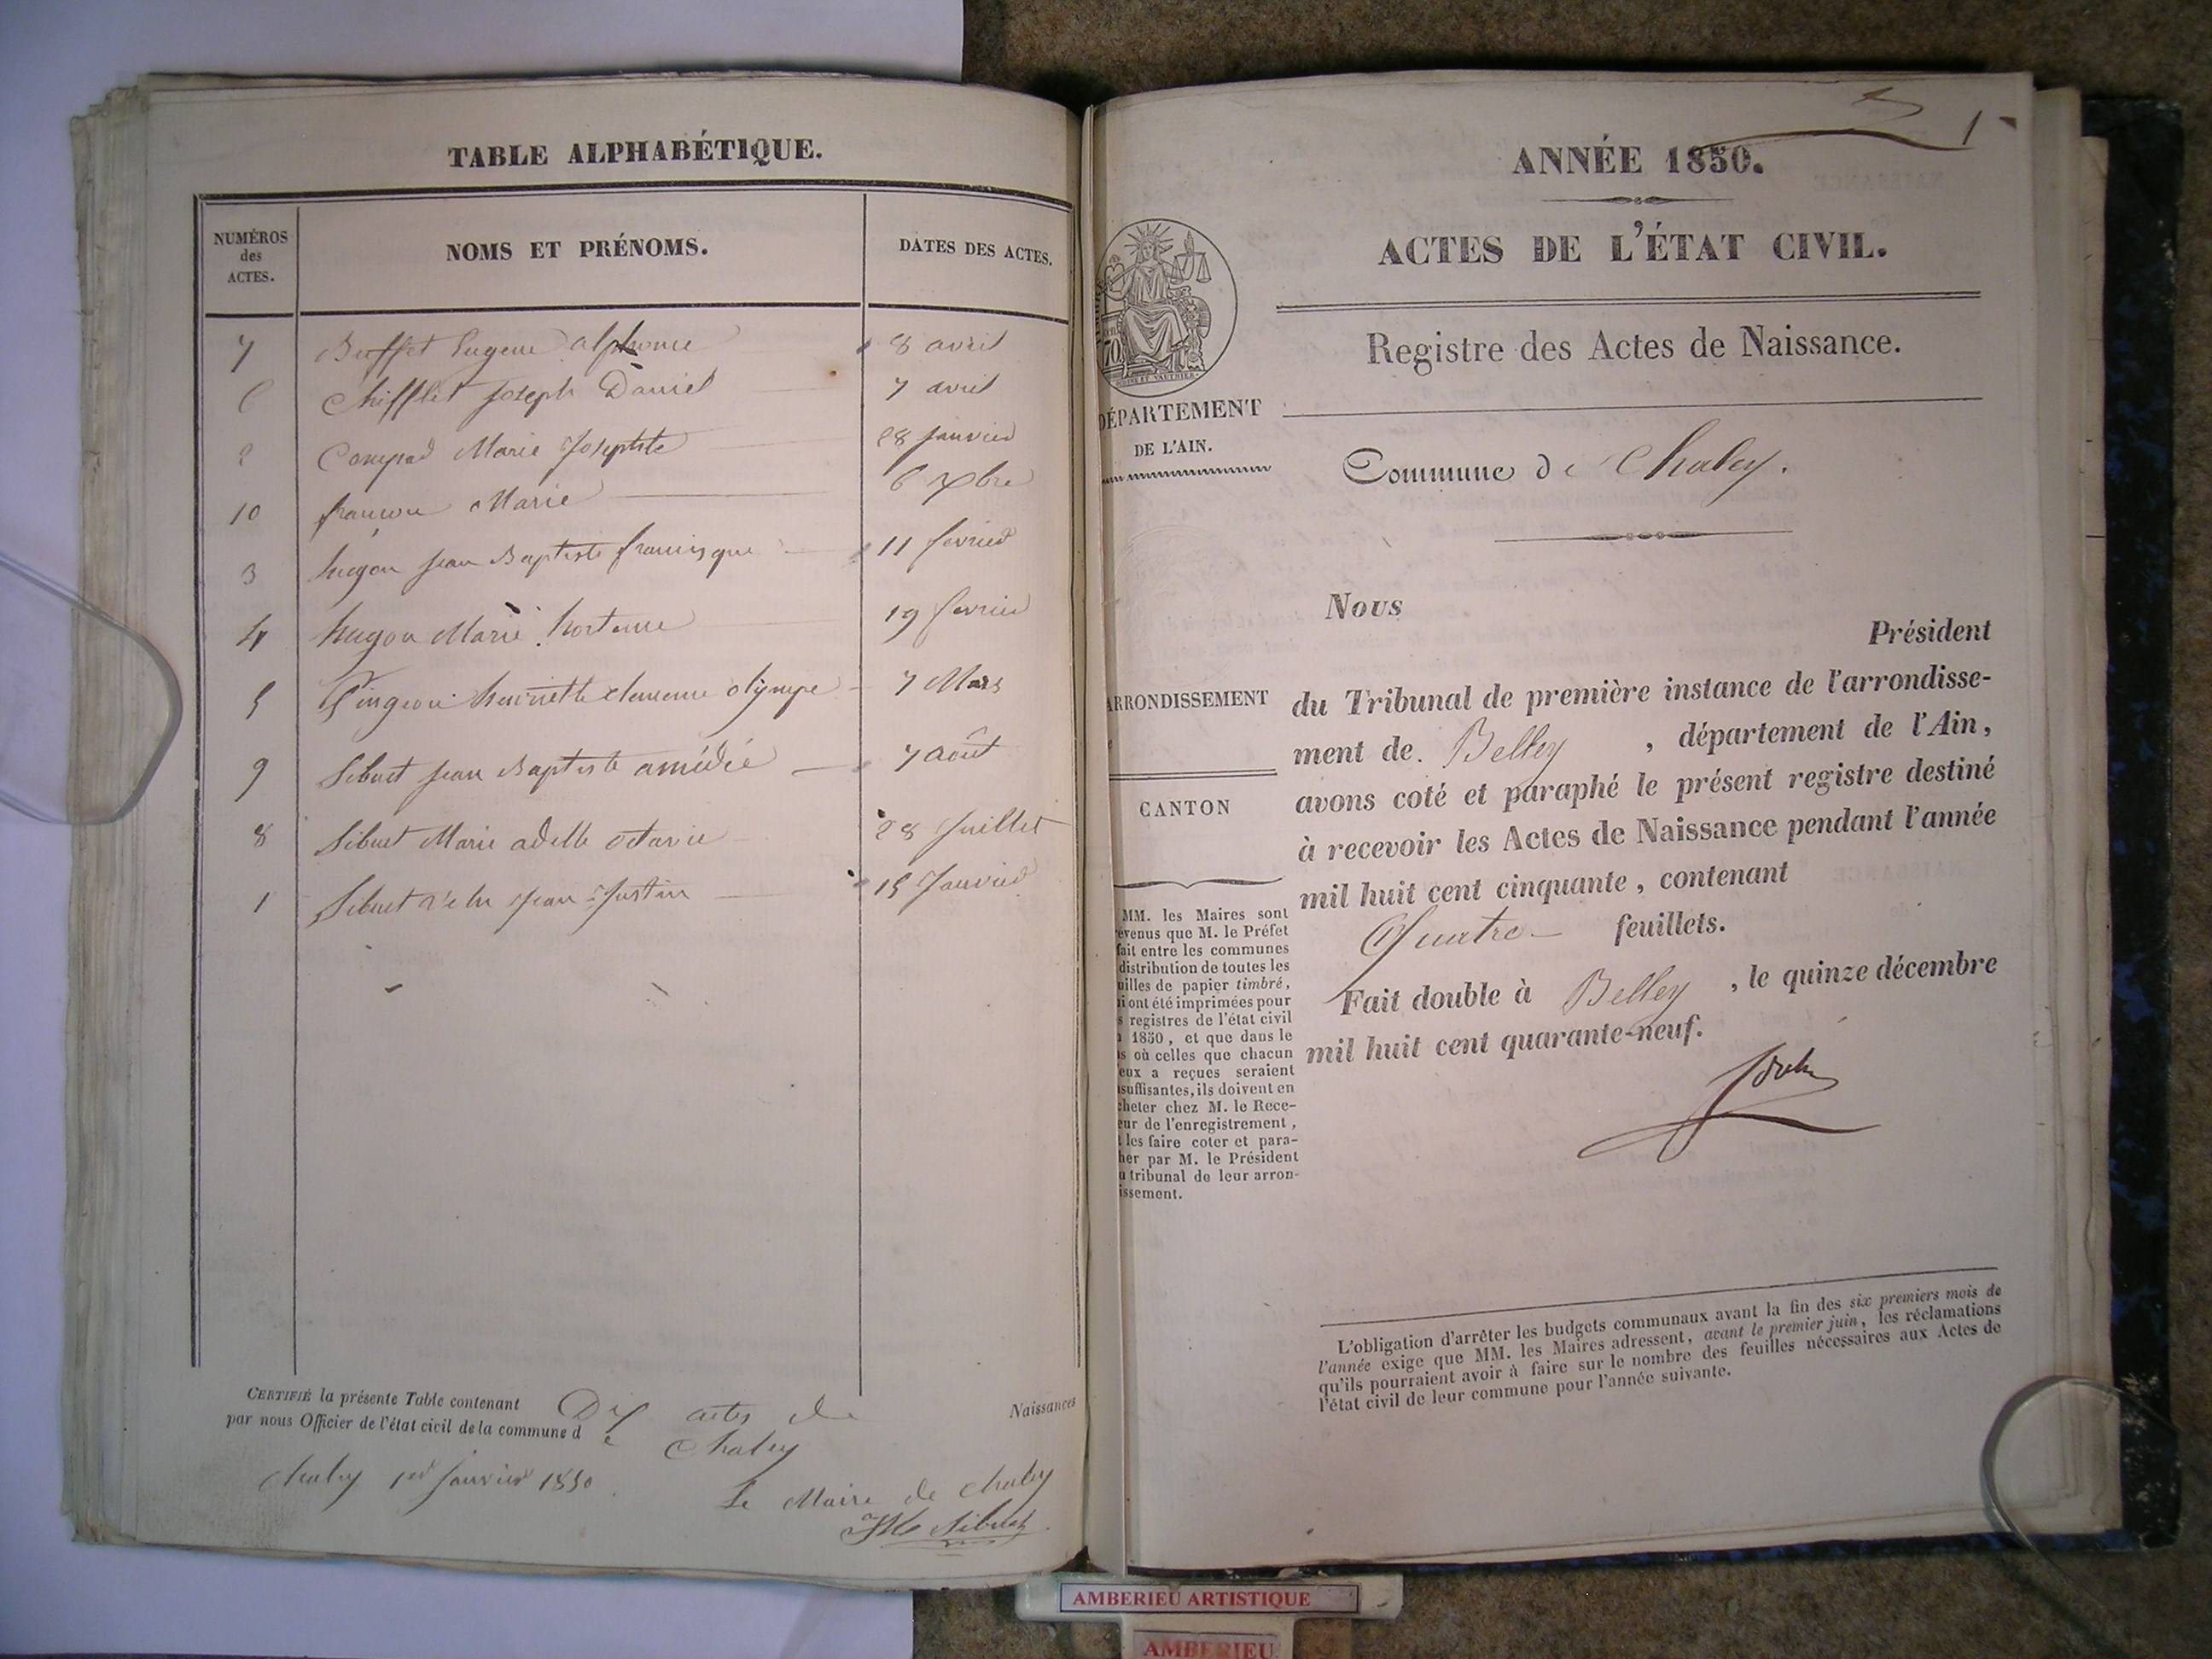 TABLE ALPHABÉTIQUE.
NUMÉROS
des
ACTES.
NOMS ET PRÉNOMS.
DATES DES ACTES.
7 Buffet Eugene alphonse 8 avril
6 Chifflet Joseph Daniel 7 avril
2 Marie Josephte 28 janvier
10 françon Marie 6 xbre
3 hugon jean Baptiste francisque 11 février
4 hugon Marie hortense 19 fevrier
5 Pingeon henriette clemence olympe 7 Mars
9 Sibuet jean Baptiste amédée 7 août
8 Sibuet Marie adelle octavie 28 Juillet
1 Sibuet jean Justin 15 Janvier
CERTIFIÉ la présente Table contenant Dix actes de Naissances
par nous Officier de l'état civil de la commune de Chaley
Chaley 1er Janvier 1850.
Le Maire de Chaley
Sibuet
1
ANNÉE 1850.
ACTES DE L'ÉTAT CIVIL.
Registre des Actes de Naissance.
DÉPARTEMENT
DE L'AIN.
Commune de Chaley.
Nous
Président
ARRONDISSEMENT
du Tribunal de première instance de l'arrondisse-
ment de Belley, département de l'Ain,
avons coté et paraphé le présent registre destiné
à recevoir les Actes de Naissance pendant l'année
mil huit cent cinquante, contenant
Quatre feuillets.
Fait double à Belley, le quinze décembre
mil huit cent quarante-neuf.
CANTON
MM. les Maires sont
evenus que M. le Préfet
fait entre les communes
distribution de toutes les
uilles de papier timbré,
i ont été imprimées pour
s registres de l'état civil
1850, et que dans le
s où celles que chacun
eux a reçues seraient
suffisantes, ils doivent en
cheter chez M. le Rece-
eur de l'enregistrement,
les faire coter et para-
her par M. le Président
u tribunal de leur arron-
issement.
L'obligation d'arrêter les budgets communaux avant la fin des six premiers mois de
l'année exige que MM. les Maires adressent, avant le premier juin, les réclamations
qu'ils pourraient avoir à faire sur le nombre des feuilles nécessaires aux Actes de
l'état civil de leur commune pour l'année suivante.
AMBERIEU ARTISTIQUE
AMBERIEU